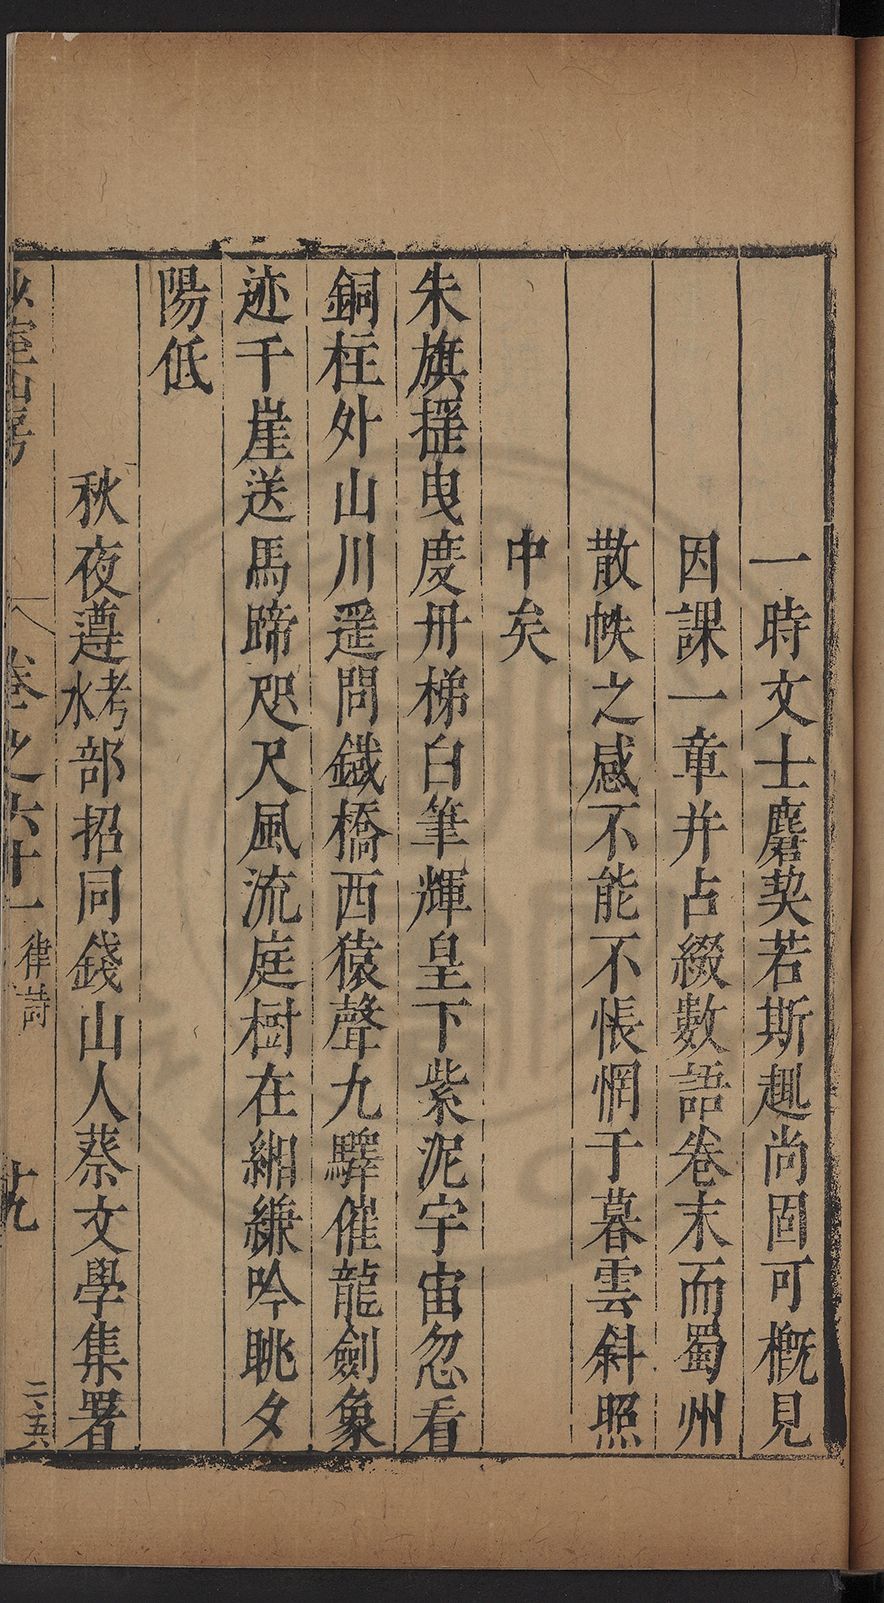 一時文士麏葜若斯趣尚固可槪見
因課一章并占綴數語卷末而蜀州
散帙之感不能不悵惘于暮雲斜照
中矣
朱旗搖曳度丹梯白筆輝皇下紫泥宇宙忽看
銅柱外山川遥問鐵橋西猿聲九驛催龍劍象
迹千崖送馬蹄咫尺風流庭樹在緗縑吟眺夕
陽低
秋夜遵考水部招同錢山人蔡文學集署
室山房 卷之六十一 律詩 十九 二百五六